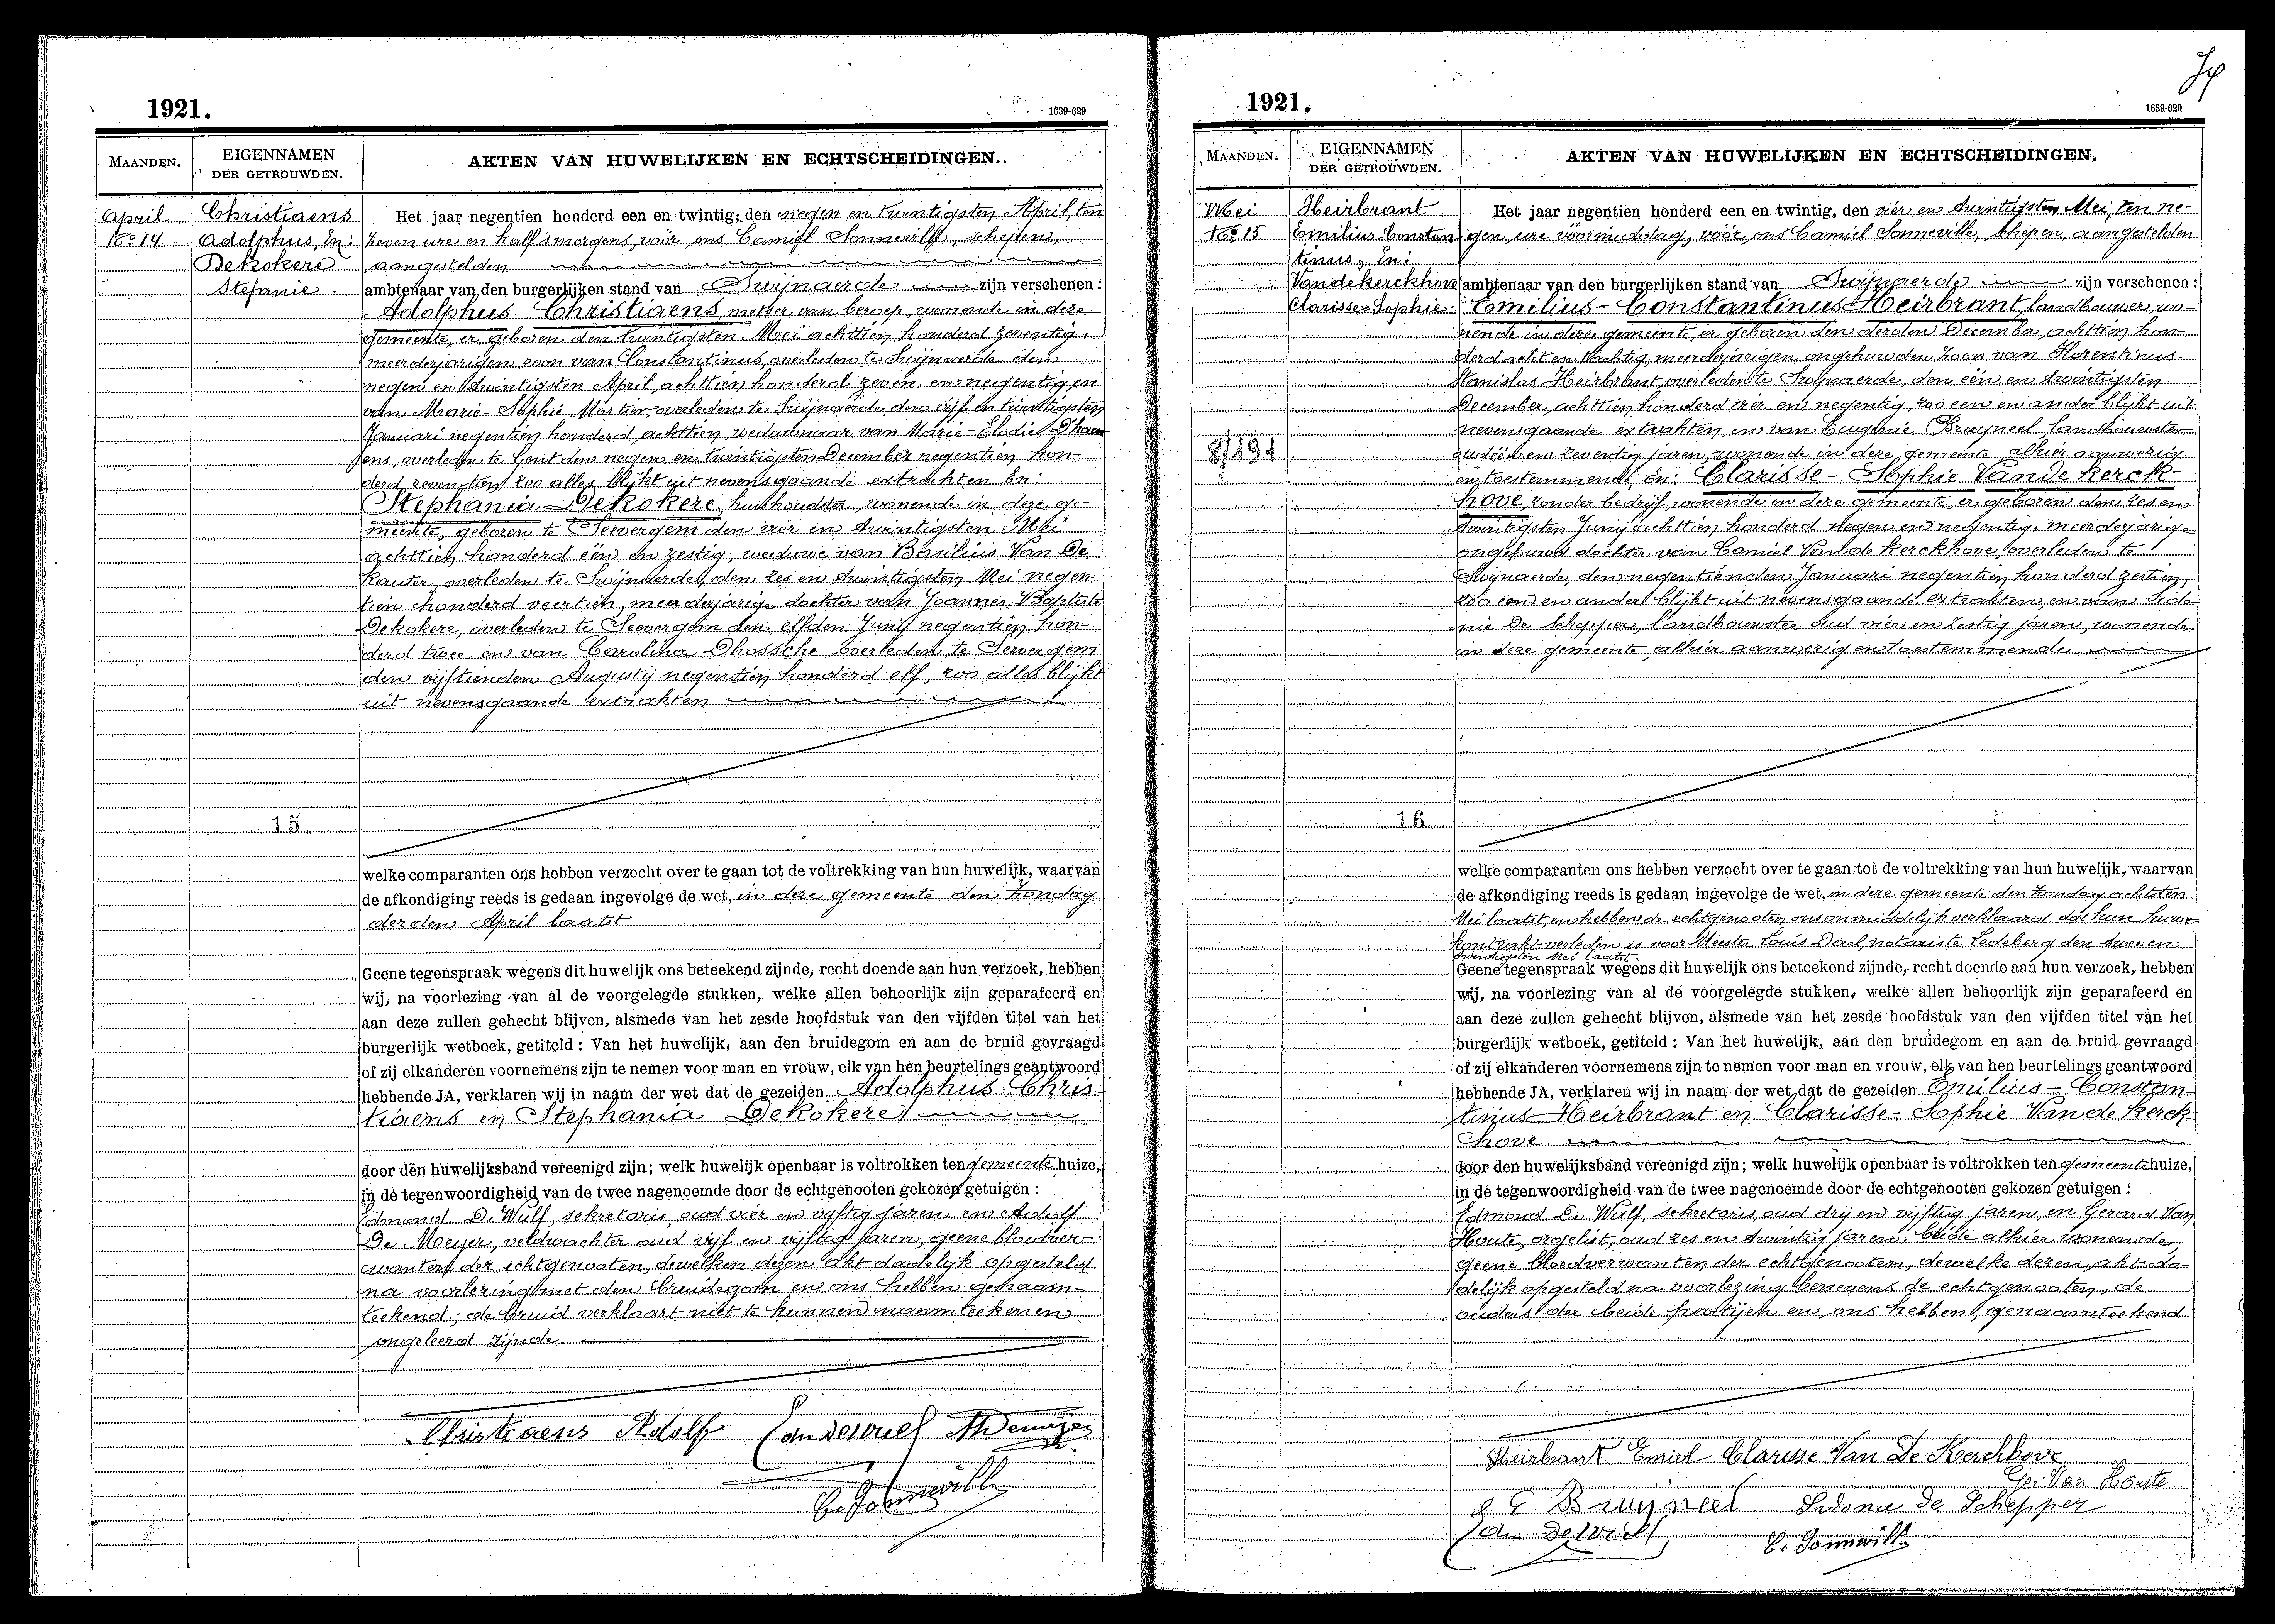 1921.
1639-629
MAANDEN.
EIGENNAMEN
DER GETROUWDEN.
AKTEN VAN HUWELIJKEN EN ECHTSCHEIDINGEN.
April
No 14
Christiaens
Adolphus, En:
Dekokere
Stefanie.
Het jaar negentien honderd een en twintig, den negen en twintigsten April, ten
zeven ure en half 's morgens, vóór ons Camiel Sonneville, schepen,
aangestelden
ambtenaar van den burgerlijken stand van Swijnaerde zijn verschenen:
Adolphus Christiaens, metser van beroep, wonende in deze
gemeente, er geboren den twintigsten Mei achttien honderd zeventig,
meerderjarigen zoon van Constantinus, overleden te Swijnaerde den
negen en twintigsten April, achttien honderd zeven en negentig en
van Marie-Sophie Martier, overleden te Swijnaerde den vijf en twintigsten
Januari negentien honderd achttien, weduwnaar van Marie-Elodie D'haen
ens, overleden te Gent den negen en twintigsten December negentien hon-
derd zeventien zoo alles blijkt uit nevensgaande extrakten En:
Stephania Dekokere, huishoudster, wonende in deze ge-
meente, geboren te Seevergem den vier en twintigsten Mei
achttien honderd één en zestig, weduwe van Basilius Van De
Kauter, overleden te Swijnaerde, den zes en twintigsten Mei negen-
tien honderd veertien, meerderjarige dochter van Joannes-Baptiste
Dekokere, overleden te Seevergem den elfden Junij negentien hon-
derd twee en van Carolina Dhossche overleden te Seevergem
den vijftienden Augustij negentien honderd elf, zoo alles blijkt
uit nevensgaande extrakten
15
welke comparanten ons hebben verzocht over te gaan tot de voltrekking van hun huwelijk, waarvan
de afkondiging reeds is gedaan ingevolge de wet, in deze gemeente den Zondag
derden April laatst
Geene tegenspraak wegens dit huwelijk ons beteekend zijnde, recht doende aan hun verzoek, hebben
wij, na voorlezing van al de voorgelegde stukken, welke allen behoorlijk zijn geparafeerd en
aan deze zullen gehecht blijven, alsmede van het zesde hoofdstuk van den vijfden titel van het
burgerlijk wetboek, getiteld: Van het huwelijk, aan den bruidegom en aan de bruid gevraagd
of zij elkanderen voornemens zijn te nemen voor man en vrouw, elk van hen beurtelings geantwoord
hebbende JA, verklaren wij in naam der wet dat de gezeiden Adolphus Chris-
tiaens en Stephania Dekokere
door den huwelijksband vereenigd zijn; welk huwelijk openbaar is voltrokken ten gemeentehuize,
in de tegenwoordigheid van de twee nagenoemde door de echtgenooten gekozen getuigen:
Edmond De Wulf, sekretaris, oud vier en vijftig jaren en Adolf
De Meyer, veldwachter oud vijf en vijftig jaren, geene bloedver-
wanten der echtgenooten, dewelken dezen akt dadelijk opgesteld
na voorlezing met den bruidegom en ons hebben genaam-
teekend; de bruid verklaart niet te kunnen naamteekenen
ongeleerd zijnde
Christiaens Adolf
C. Sonneville
1921.
1639-629
MAANDEN.
EIGENNAMEN
DER GETROUWDEN.
AKTEN VAN HUWELIJKEN EN ECHTSCHEIDINGEN.
Mei
No 15
8/191
Heirbrant
Emilius-Constan
tinus, En:
Vandekerckhove
Clarisse-Sophie.
Het jaar negentien honderd een en twintig, den vier en twintigsten Mei, ten ne-
gen ure vóórmiddag, vóór ons Camiel Sonneville, schepen, aangestelden
ambtenaar van den burgerlijken stand van Swijnaerde zijn verschenen:
Emilius-Constantinus Heirbrant, landbouwer, wo-
nende in deze gemeente, er geboren den derden December, achttien hon-
derd acht en tachtig, meerderjarigen ongehuwden zoon van Florentinus-
Stanislas Heirbrant, overleden te Swijnaerde, den één en twintigsten
December, achttien honderd vier en negentig, zoo een en ander blijkt uit
nevensgaande extrakten, en van Eugenie Bruyneel, landbouwster
oud één en zeventig jaren, wonende in deze gemeente, alhier aanwezig
en toestemmende, En: Clarisse-Sophie Vande Kerck-
hove, zonder bedrijf, wonende in deze gemeente, er geboren den zes en
twintigsten Junij achttien honderd negen en negentig, meerderjarige
ongehuwde dochter van Camiel Van de Kerckhove, overleden te
Swijnaerde, den negentienden Januari negentien honderd zestien,
zoo een en ander blijkt uit nevensgaande extrakten, en van Sido-
nie De Schepper, landbouwster oud vier en zestig jaren, wonende
in deze gemeente, alhier aanwezig en toestemmende.
16
welke comparanten ons hebben verzocht over te gaan tot de voltrekking van hun huwelijk, waarvan
de afkondiging reeds is gedaan ingevolge de wet, in deze gemeente den Zondag achtsten
Mei laatst, en hebben de echtgenooten ons onmiddelijk verklaard dat hun huwe
kontrakt verleden is voor Meester Louis Dael, notaris te Ledeberg den twee en
twintigsten Mei laatst.
Geene tegenspraak wegens dit huwelijk ons beteekend zijnde, recht doende aan hun verzoek, hebben
wij, na voorlezing van al de voorgelegde stukken, welke allen behoorlijk zijn geparafeerd en
aan deze zullen gehecht blijven, alsmede van het zesde hoofdstuk van den vijfden titel van het
burgerlijk wetboek, getiteld: Van het huwelijk, aan den bruidegom en aan de bruid gevraagd
of zij elkanderen voornemens zijn te nemen voor man en vrouw, elk van hen beurtelings geantwoord
hebbende JA, verklaren wij in naam der wet dat de gezeiden Emilius-Constan-
tinus Heirbrant en Clarisse-Sophie Van de Kerck-
hove
door den huwelijksband vereenigd zijn; welk huwelijk openbaar is voltrokken ten gemeentehuize,
in de tegenwoordigheid van de twee nagenoemde door de echtgenooten gekozen getuigen:
Edmond De Wulf, sekretaris, oud drij en vijftig jaren, en Gerard Van
Houte, orgelist, oud zes en twintig jaren, beide alhier wonende,
geene bloedverwanten der echtgenooten, dewelke dezen, akt da-
delijk opgesteld na voorlezing benevens de echtgenooten, de
ouders der beide partijen en ons hebben, genaamteekend
Heirbrant Emiel Clarisse Van De Kerckhove
Ge. Van Houte
E. Bruijneel Sidonie De Schepper
C. Sonneville